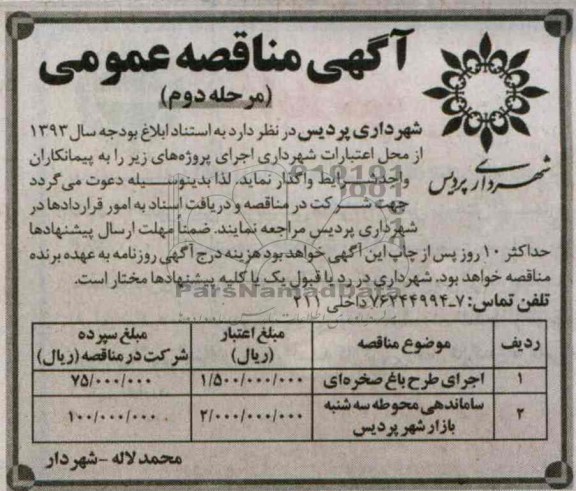 آگهی مناقصه عمومی
(مرحله دوم)
شهرداری پردیس
شهرداری پردیس در نظر دارد به استناد ابلاغ بودجه سال ۱۳۹۳
از محل اعتبارات شهرداری اجرای پروژه‌های زیر را به پیمانکاران
واجد شرایط واگذار نماید. لذا بدینوسیله دعوت می‌گردد
جهت شرکت در مناقصه و دریافت اسناد به امور قراردادها در
شهرداری پردیس مراجعه نمایند. ضمناً مهلت ارسال پیشنهادها
حداکثر ۱۰ روز پس از چاپ این آگهی خواهد بود هزینه درج آگهی روزنامه به عهده برنده
مناقصه خواهد بود. شهرداری در رد یا قبول یک یا کلیه پیشنهادها مختار است.
ParsNamadData
تلفن تماس: ۷-۷۶۲۴۴۹۹۴ داخلی ۲۱۱
ردیف موضوع مناقصه مبلغ اعتبار (ریال) مبلغ سپرده شرکت در مناقصه (ریال)
۱ اجرای طرح باغ صخره‌ای ۱/۵۰۰/۰۰۰/۰۰۰ ۷۵/۰۰۰/۰۰۰
۲ ساماندهی محوطه سه شنبه بازار شهر پردیس ۲/۰۰۰/۰۰۰/۰۰۰ ۱۰۰/۰۰۰/۰۰۰
محمد لاله - شهردار